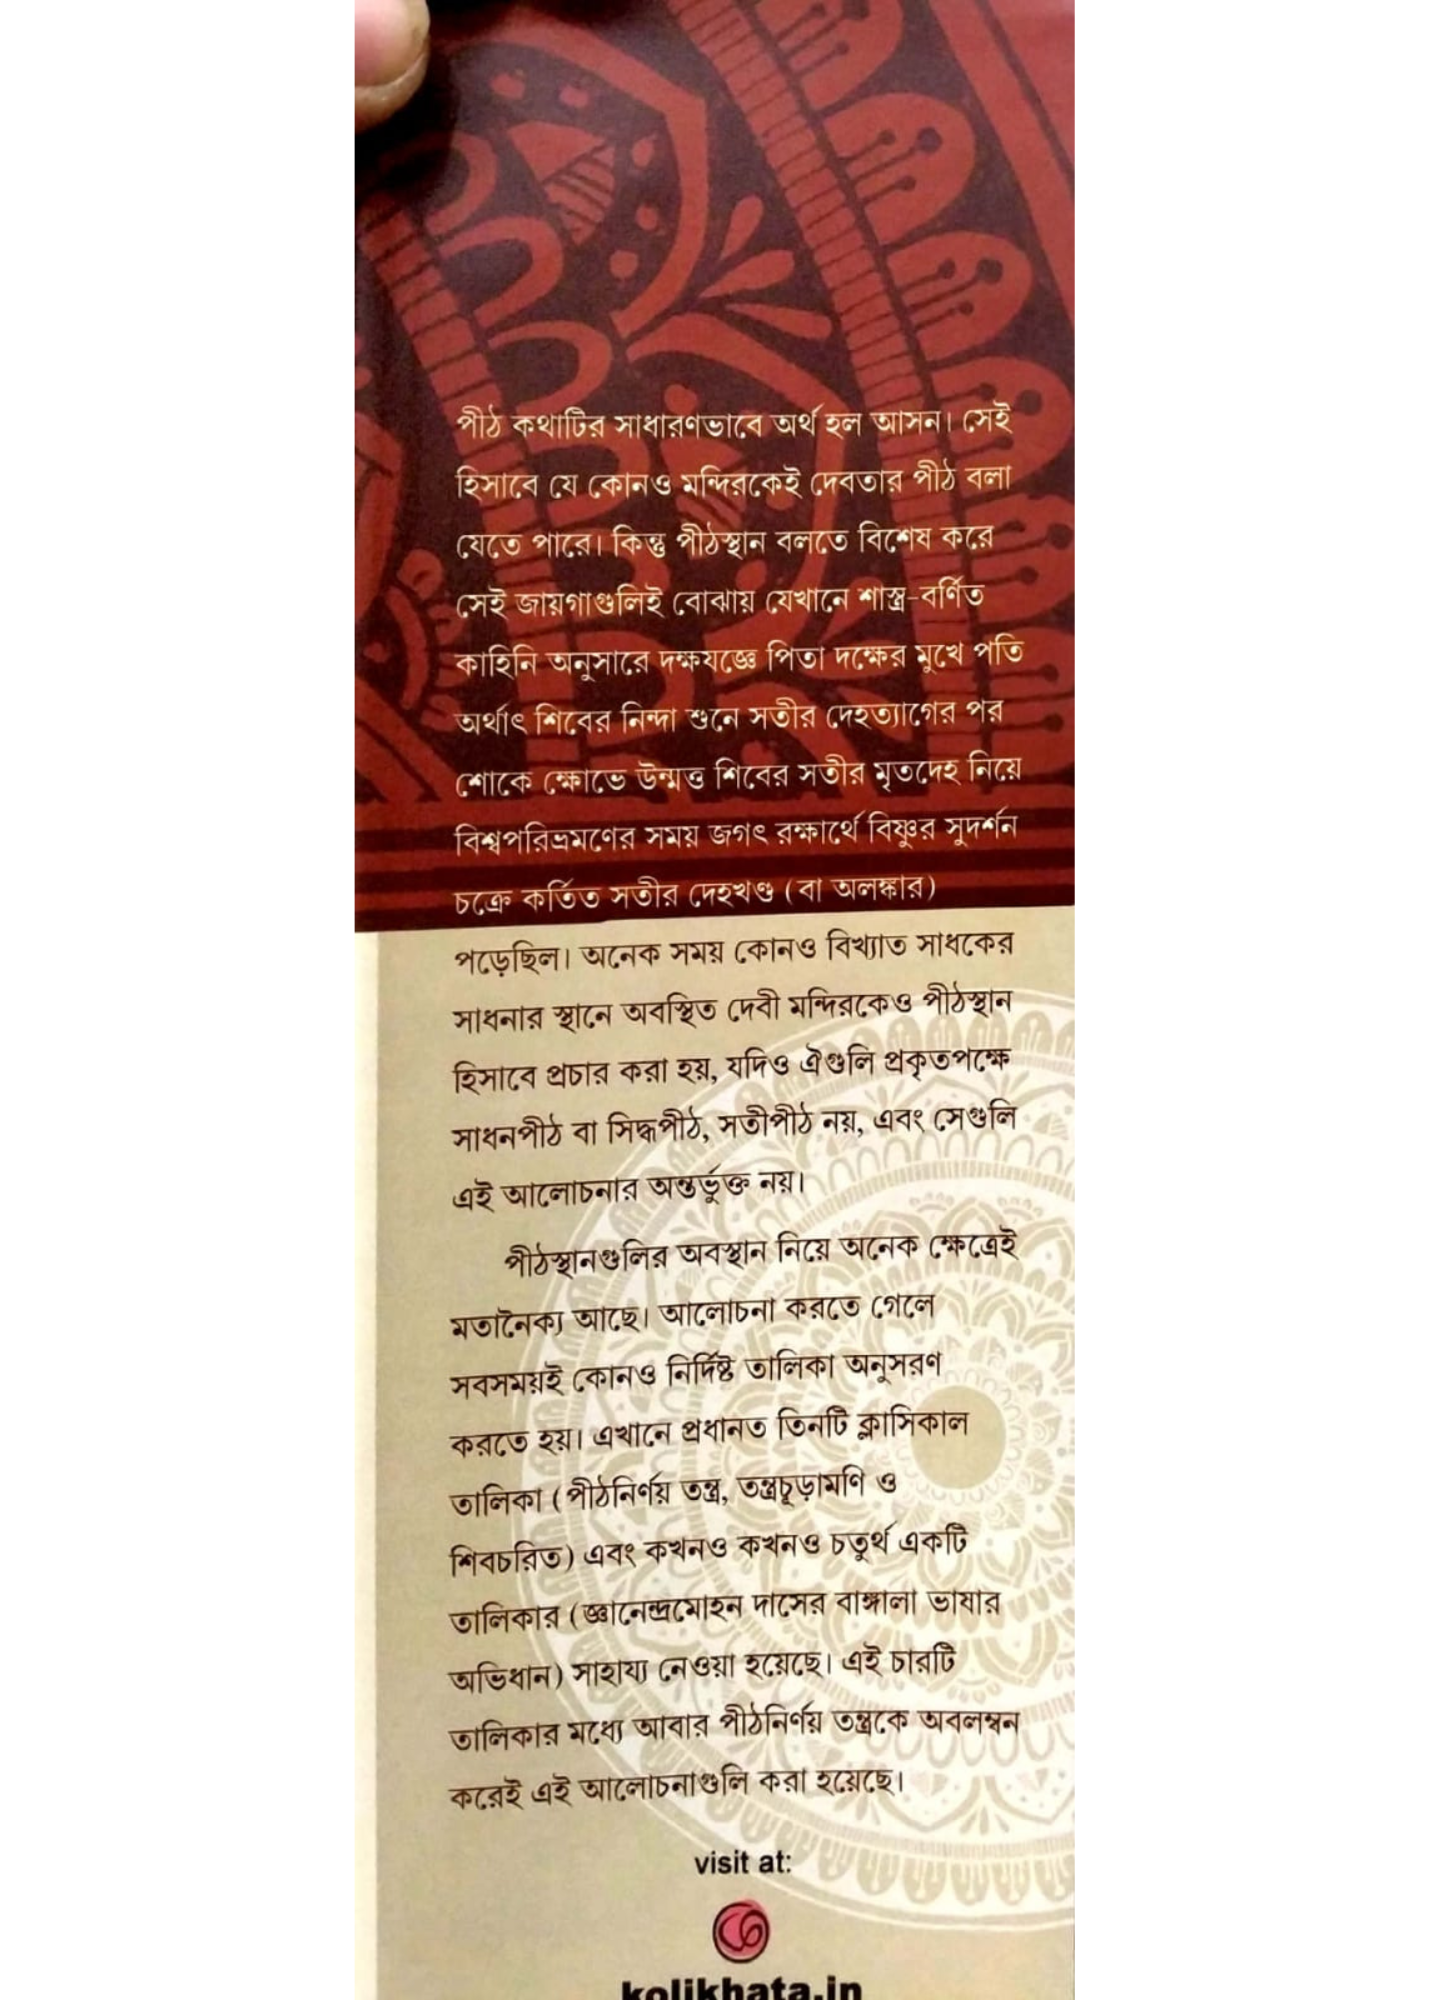 পীঠ কথাটির সাধারণভাবে অর্থ হল আসন। সেই
হিসাবে যে কোনও মন্দিরকেই দেবতার পীঠ বলা
যেতে পারে। কিন্তু পীঠস্থান বলতে বিশেষ করে
সেই জায়গাগুলিই বোঝায় যেখানে শাস্ত্র-বর্ণিত
কাহিনি অনুসারে দক্ষযজ্ঞে পিতা দক্ষের মুখে পতি
অর্থাৎ শিবের নিন্দা শুনে সতীর দেহত্যাগের পর
শোকে ক্ষোভে উন্মত্ত শিবের সতীর মৃতদেহ নিয়ে
বিশ্বপরিভ্রমণের সময় জগৎ রক্ষার্থে বিষ্ণুর সুদর্শন
চক্রে কর্তিত সতীর দেহখণ্ড (বা অলঙ্কার)
পড়েছিল। অনেক সময় কোনও বিখ্যাত সাধকের
সাধনার স্থানে অবস্থিত দেবী মন্দিরকেও পীঠস্থান
হিসাবে প্রচার করা হয়, যদিও ঐগুলি প্রকৃতপক্ষে
সাধনপীঠ বা সিদ্ধপীঠ, সতীপীঠ নয়, এবং সেগুলি
এই আলোচনার অন্তর্ভুক্ত নয়।
পীঠস্থানগুলির অবস্থান নিয়ে অনেক ক্ষেত্রেই
মতানৈক্য আছে। আলোচনা করতে গেলে
সবসময়ই কোনও নির্দিষ্ট তালিকা অনুসরণ
করতে হয়। এখানে প্রধানত তিনটি ক্লাসিকাল
তালিকা (পীঠনির্ণয় তন্ত্র, তন্ত্রচূড়ামণি ও
শিবচরিত) এবং কখনও কখনও চতুর্থ একটি
তালিকার (জ্ঞানেন্দ্রমোহন দাসের বাঙ্গালা ভাষার
অভিধান) সাহায্য নেওয়া হয়েছে। এই চারটি
তালিকার মধ্যে আবার পীঠনির্ণয় তন্ত্রকে অবলম্বন
করেই এই আলোচনাগুলি করা হয়েছে।
visit at:
kolikhata.in